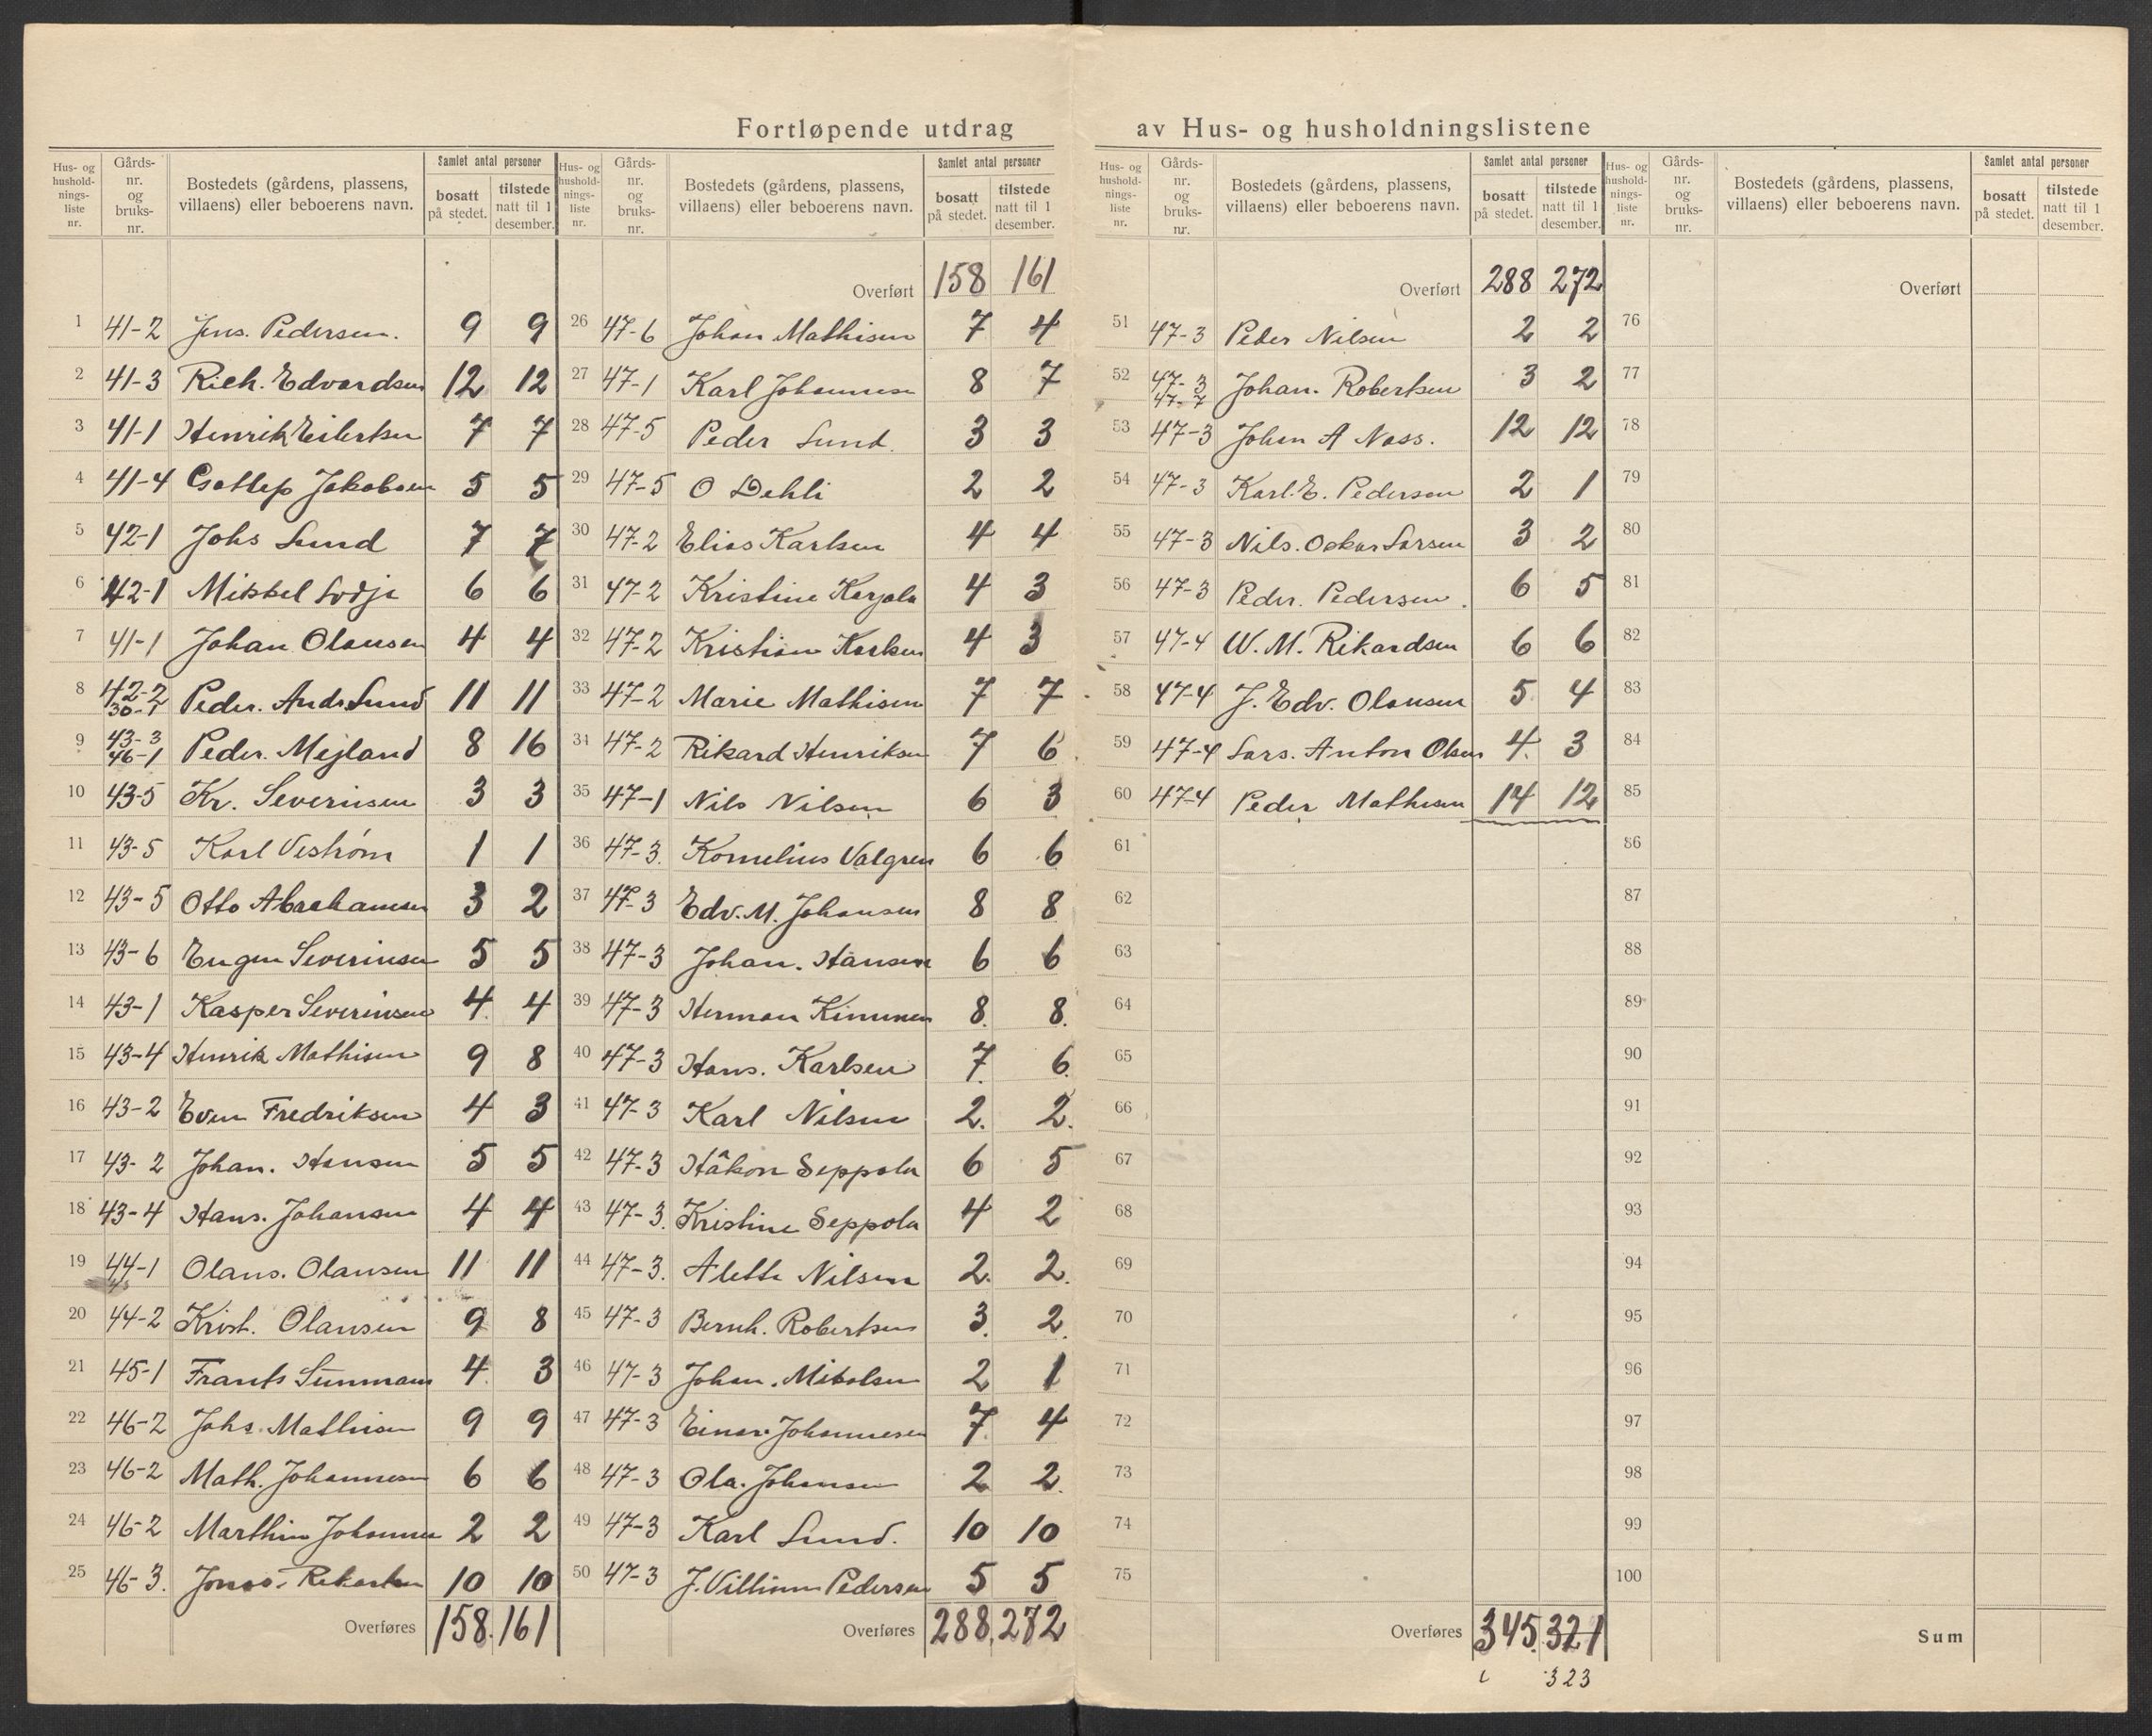 Fortløpende utdrag av Hus- og husholdningslistene
Hus- og hushold- nings- liste nr. | Gårds- nr. og bruks- nr. | Bostedets (gårdens, plassens, villaens) eller beboerens navn. | Samlet antal personer | bosatt på stedet. | tilstede natt til 1 desember.
1 41-2 Jens. Pedersen. 9 9
2 41-3 Rich. Edvardsen 12 12
3 41-1 Henrik Eilertsen 7 7
4 41-4 Gottlep Jakobsen 5 5
5 42-1 Johs Lund 7 7
6 42-1 Mikkel 6 6
7 41-1 Johan Olausen 4 4
8 42-2 30-1 Peder. Andr. Lund 11 11
9 43-3 46-1 Peder. Mejland 8 16
10 43-5 Kr. Severinsen 3 3
11 43-5 Karl Vestrøm 1 1
12 43-5 Otto Abrahamsen 3 2
13 43-6 Eugen Severinsen 5 5
14 43-1 Kasper Severinsen 4 4
15 43-4 Henrik Mathisen 9 8
16 43-2 Even Fredriksen 4 3
17 43-2 Johan. Hansen 5 5
18 43-4 Hans. Johansen 4 4
19 44-1 Olaus. Olausen 11 11
20 44-2 Krist. Olausen 9 8
21 45-1 Frants Sunmann 4 3
22 46-2 Johs. Mathisen 9 9
23 46-2 Math. Johannesen 6 6
24 46-2 Marthin Johannes 2 2
25 46-3. Jonas. Rikartsen 10 10
Overføres 158. 161
Hus- og hushold- nings- liste nr. | Gårds- nr. og bruks- nr. | Bostedets (gårdens, plassens, villaens) eller beboerens navn. | Samlet antal personer | bosatt på stedet. | tilstede natt til 1 desember.
Overført 158 161
26 47-6 Johan Mathisen 7 4
27 47-1 Karl Johannesen 8 7
28 47-5 Peder Lund. 3 3
29 47-5 O Dehli 2 2
30 47-2 Elias Karlsen 4 4
31 47-2 Kristine Kerjola 4 3
32 47-2 Kristian Karlsen 4 3
33 47-2 Marie Mathisen 7 7
34 47-2 Rikard Henriksen 7 6
35 47-1 Nils Nilsen 6 3
36 47-3. Kornelius Valgren 6 6
37 47-3 Edv. M. Johansen 8 8
38 47-3 Johan. Hansen 6 6
39 47-3 Herman Kinnunen 8. 8.
40 47-3 Hans. Karlsen 7. 6.
41 47-3 Karl Nilsen 2. 2.
42 47-3 Håkon Seppola 6 5
43 47-3. Kristine Seppola 4 2
44 47-3. Alette Nilsen 2. 2.
45 47-3 Bernh. Robertsen 3. 2.
46 47-3 Johan. Mikalsen 2 1
47 47-3 Einar. Johannesen 7. 4
48 47-3 Ola. Johansen 2 2.
49 47-3 Karl Lund. 10 10
50 47-3 J. Villiam Pedersen 5 5
Overføres 288. 272
Hus- og hushold- nings- liste nr. | Gårds- nr. og bruks- nr. | Bostedets (gårdens, plassens, villaens) eller beboerens navn. | Samlet antal personer | bosatt på stedet. | tilstede natt til 1 desember.
Overført 288 272
51 47-3 Peder Nilsen 2 2
52 47-3 47-7 Johan. Robertsen 3 2
53 47-3 Johan A Nass. 12 12
54 47-3 Karl. E. Pedersen 2 1
55 47-3 Nils. Oskar Larsen 3 2
56 47-3 Peder. Pedersen. 6 5
57 47-4 W. M. Rikardsen 6 6
58 47-4 J. Edv. Olausen 5 4
59 47-4 Lars. Anton Olsen 4. 3
60 47-4 Peder Mathisen 14 12
61
62
63
64
65
66
67
68
69
70
71
72
73
74
75
Overføres 345. 321
323
Hus- og hushold- nings- liste nr. | Gårds- nr. og bruks- nr. | Bostedets (gårdens, plassens, villaens) eller beboerens navn. | Samlet antal personer | bosatt på stedet. | tilstede natt til 1 desember.
Overført
76
77
78
79
80
81
82
83
84
85
86
87
88
89
90
91
92
93
94
95
96
97
98
99
100
Sum